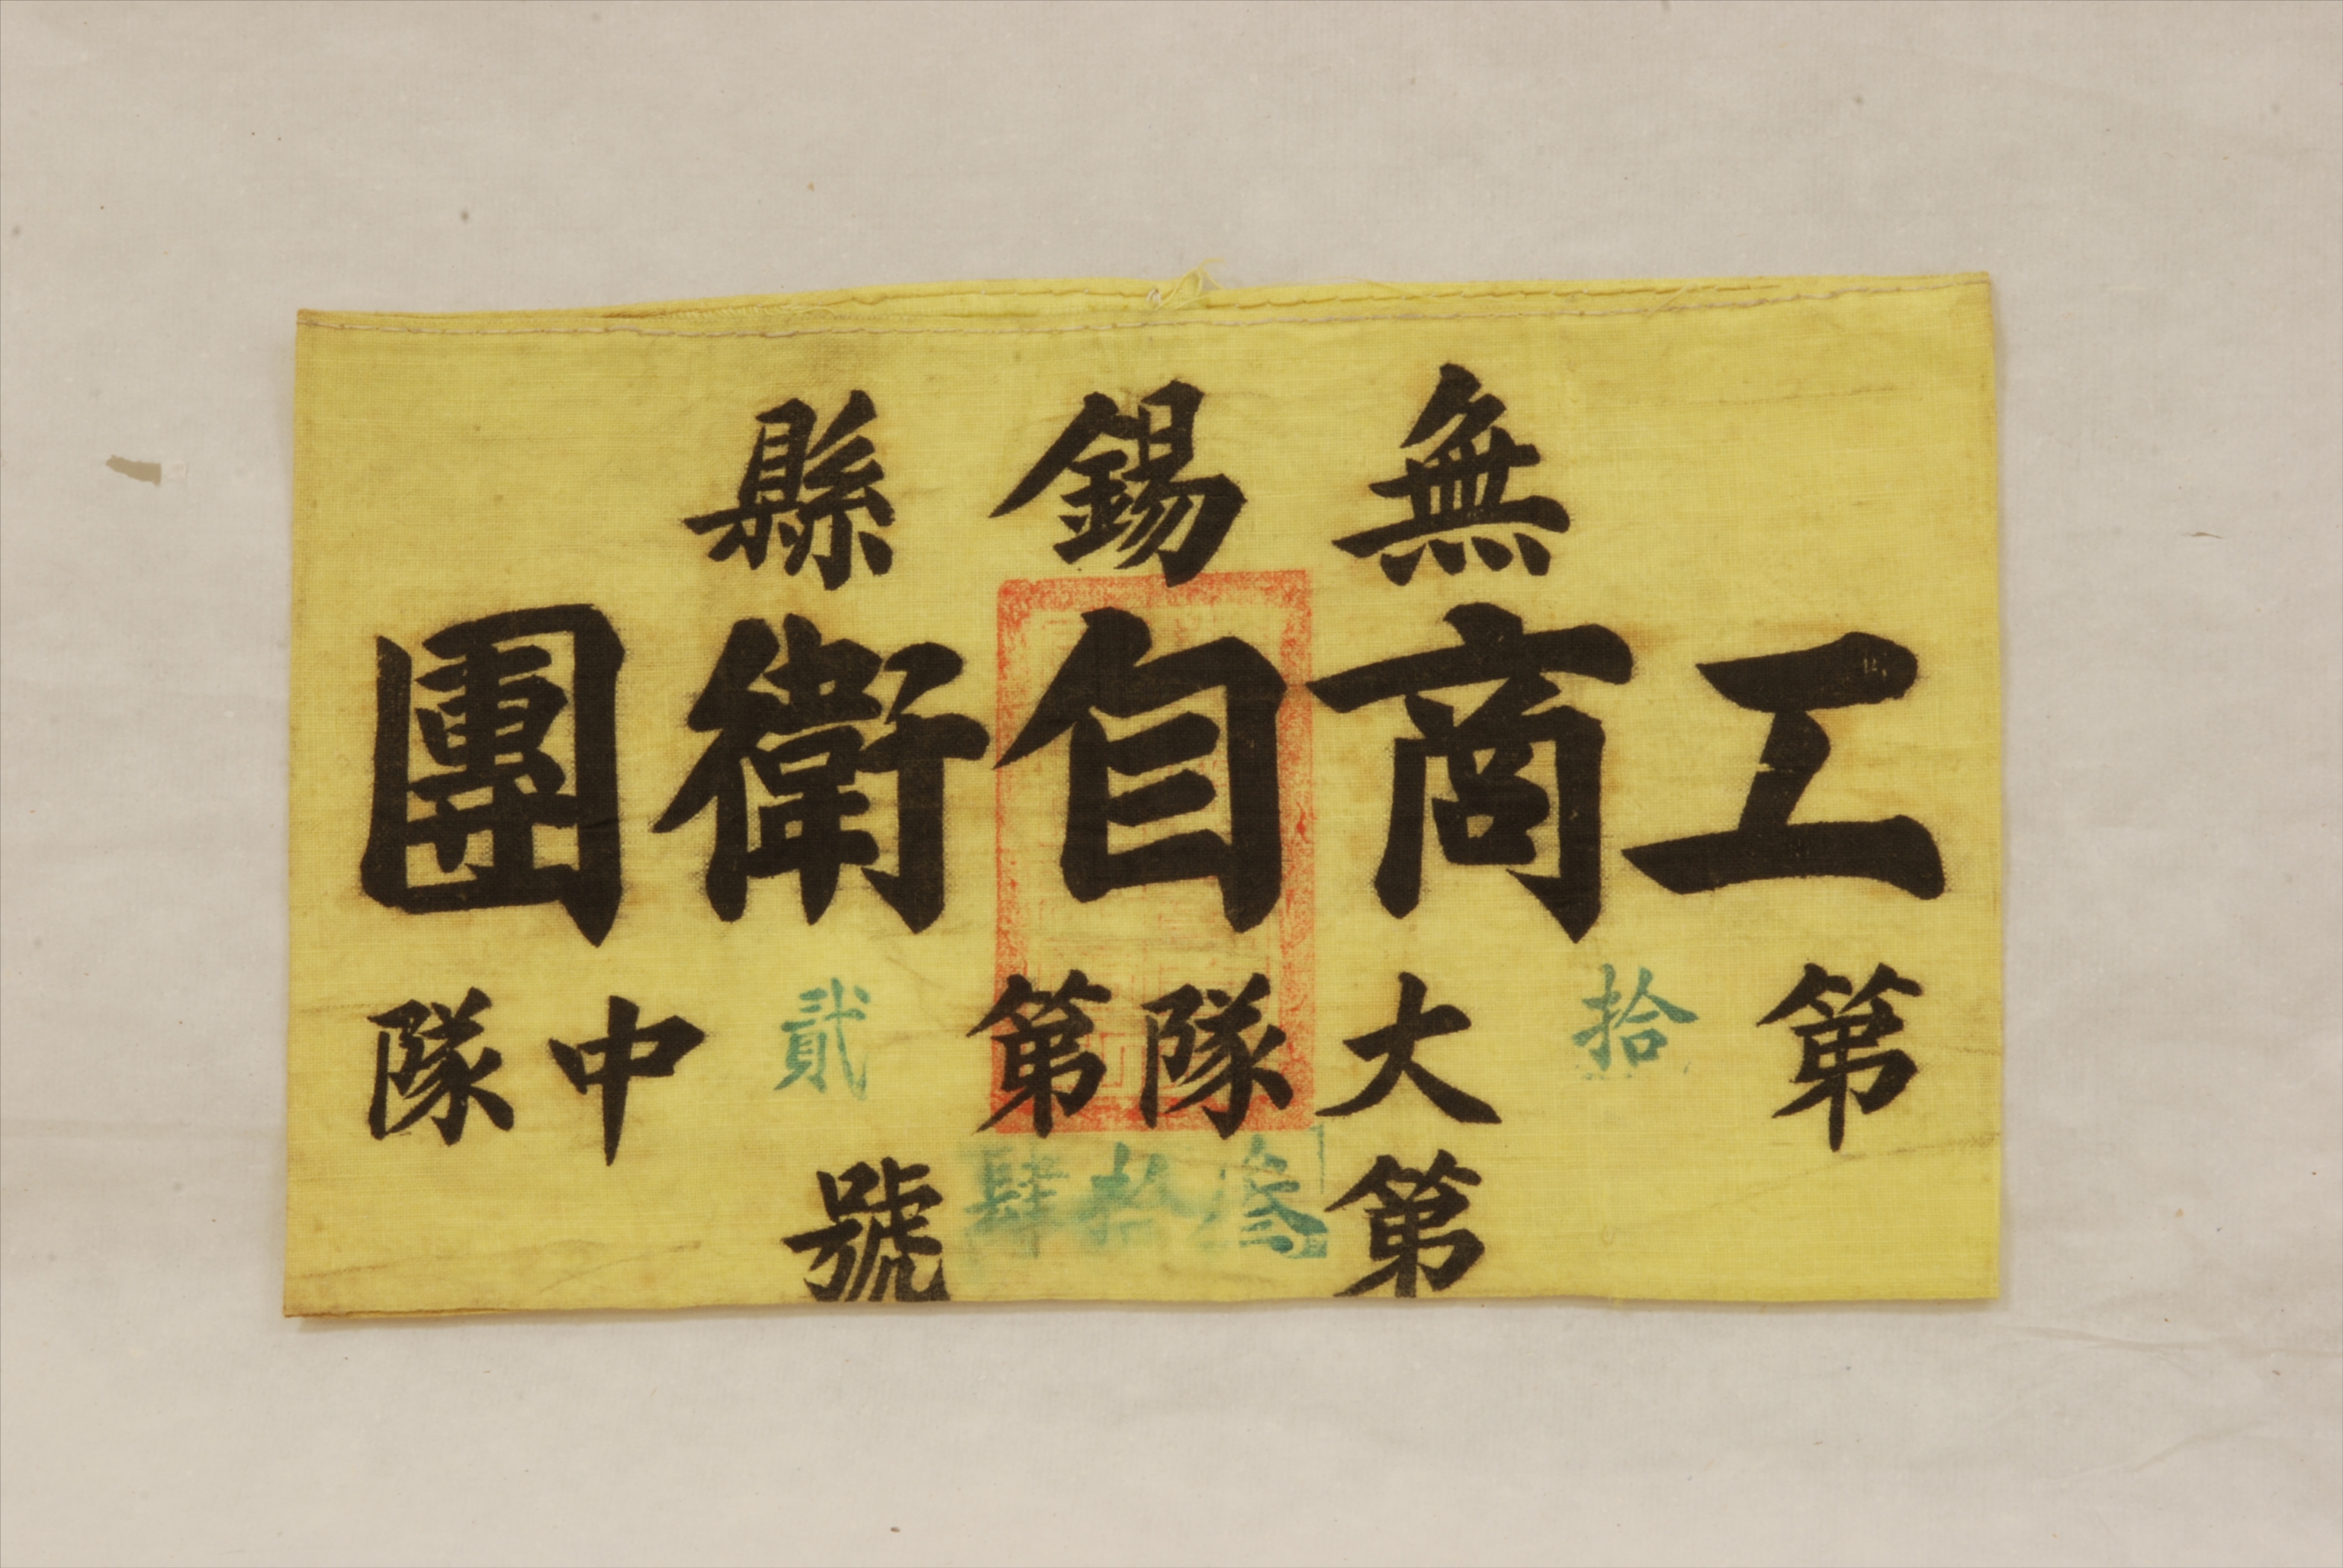 無錫縣
工商自衛團
第拾大隊第貳中隊
第叁拾肆號